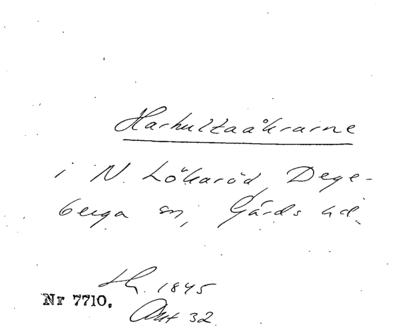 Harhultaåkrarne
i N. Lökaröd, Dege-
berga sn, Gärds hd.
Lh. 1845
Nr 7710. Akt 32